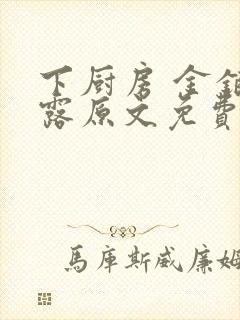 下厨房金銀
露原文免費
馬庫斯威廉姆